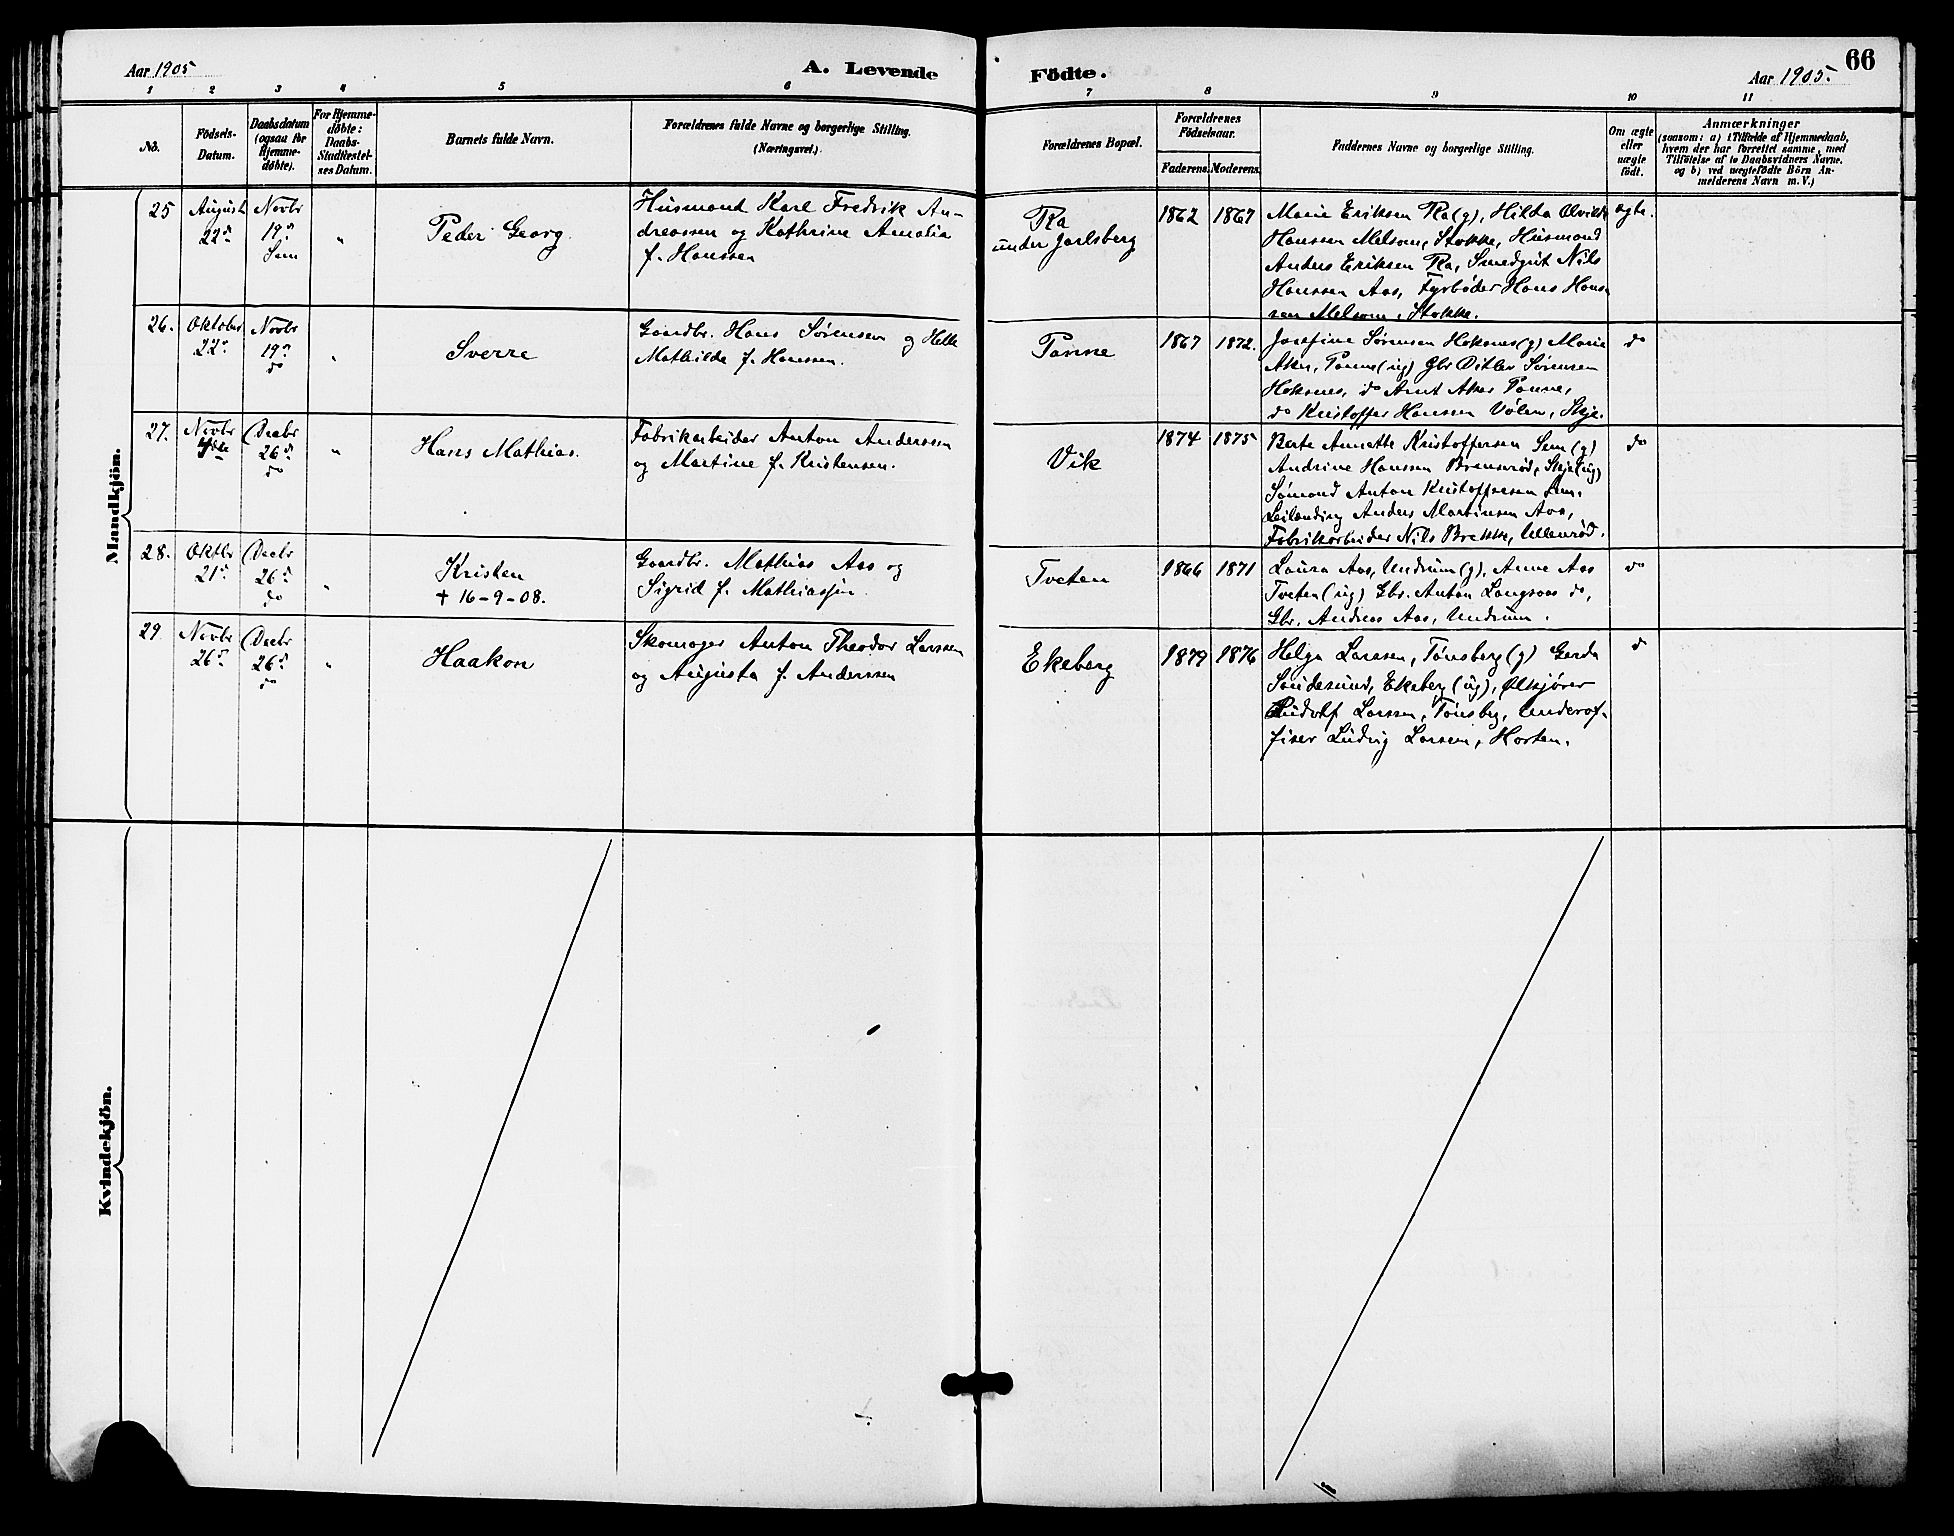 Aar 1905
A. Levende
Födte.
Aar 1905.
66
1 2 3 4 5 6 7 8 9 10 11
No.
Födsels-
Datum.
Daabsdatum
(ogsaa for
Hjemme-
döbte).
For Hjemme-
döbte:
Daabs-
Stadfæstel-
ses Datum.
Barnets fulde Navn.
Forældrenes fulde Navne og borgerlige Stilling.
(Næringsvei.)
Forældrenes Bopæl.
Forældrenes
Födselsaar.
Faderens. Moderens.
Faddernes Navne og borgerlige Stilling.
Om ægte
eller
uægte
födt.
Anmærkninger
(saasom: a) i Tilfælde af Hjemmedaab,
hvem der har forrettet samme, med
Tilföielse af to Daabsvidners Navne.
og b) ved uægtefödte Börn An-
melderens Navn m. V.)
Mandkjön.
25
August
22d
Novbr
19d
Sem
"
Peder Georg.
Husmand Karl Fredrik An-
dreassen og Kathrine Amalia
f. Hanssen
Ra
under Jarlsberg
1862
1867
Marie Eriksen Ra (g), Hilda
Hanssen Melsom, Stokke, Husmand
Anders Eriksen Ra, Smedgut Nils
Hanssen Aas, Fyrbøder Hans Hans
sen Melsom, Stokke.
ægte.
26.
Oktober
22d
Novbr
19d
do
"
Sverre
Gaardbr. Hans Sørensen og
Mathilde f. Hanssen.
Tanne
1867
1872.
Josefine Sørensen Heksnes (g) Marie
Aker, Tanne (ug) Gbr Ditlev Sørensen
Heksnes, do Arnt Aker Tanne,
do Kristoffer Hanssen Vølen, Skje.
do
27.
Novbr
Decbr
26d
do
"
Hans Mathias.
Fabrikarbeider Anton Anderssen
og Martine f. Kristensen.
Vik
1874
1875
Berte Annette Kristoffersen Sem (g)
Andrine Hanssen Brensrød, Skje (ug)
Sømand Anton Kristoffersen Sem.
Leilænding Anders Martinsen Aas,
Fabrikarbeider Nils Brekke, Ullenrød.
do
28.
Oktbr
21d
Decbr
26d
do
"
Kristen
† 16-9-08.
Gaardbr. Mathias Aas og
Sigrid f. Mathiassen.
Tveten
1866
1871
Laura Aas, Undrum (g), Anne Aas
Tveten (ug) Gbr. Anton Langaas do,
Gbr. Andreas Aas, Undrum.
do
29
Novbr
26d
Decbr
26d
do
"
Haakon
Skomager Anton Theodor Larssen
og Augusta f. Anderssen
Ekeberg
1879
1876
Helga Larssen, Tønsberg (g) Gerda
Sandesund, Ekeberg (ug), Ølkjører
Rudolf Larssen, Tønsbg, Underof-
fiser Ludvig Larsen, Horten.
d
Kvindekjön.